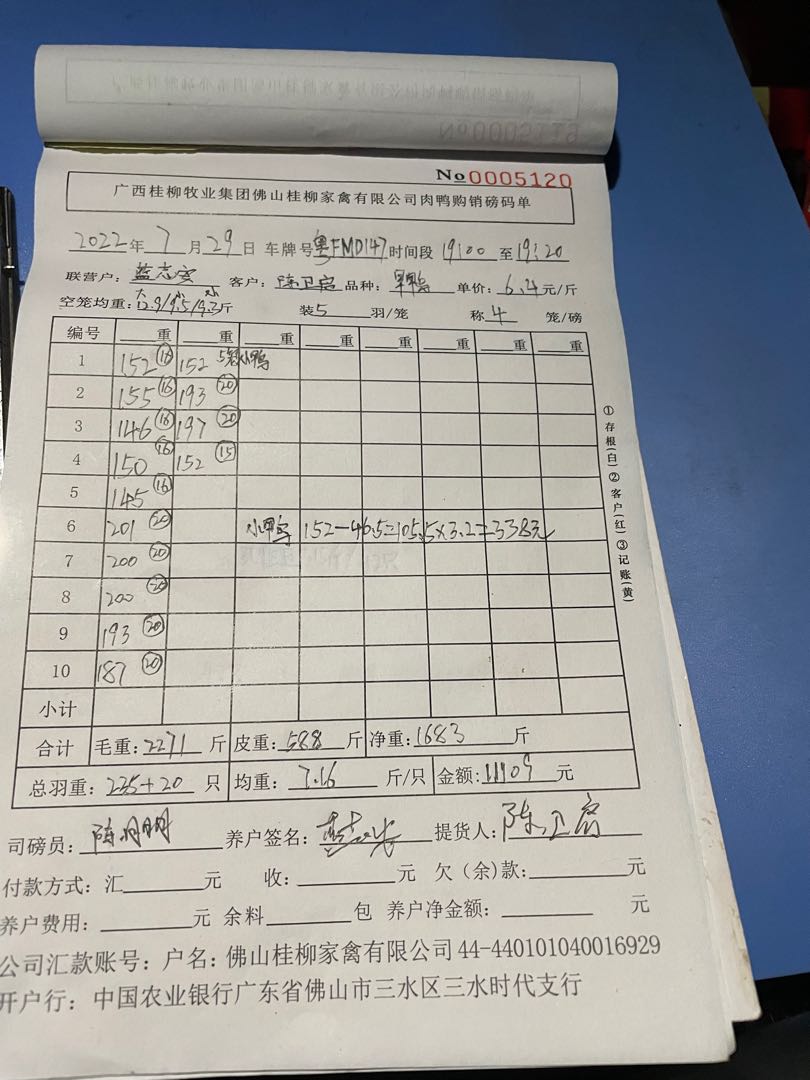 No0005120
广西桂柳牧业集团佛山桂柳家禽有限公司肉鸭购销磅码单
2022年7月29日 车牌号粤FMD147时间段19:00至19:20
联营户: 客户:陈卫 品种: 单价:6.4元/斤
空笼均重:大12.9/9.5/9.3斤 装5羽/笼 称4笼/磅
编号 重 重 重 重 重 重 重 重
1 152(16) 152 5 小鸭
2 155(16) 193(20)
3 146(16) 197(20)
4 150(16) 152(15)
5 145(16)
6 201(20) 小 152-46.5=105.5×3.2=338元
7 200(20)
8 200(20)
9 193(20)
10 187(20)
小计
合计 毛重:2271斤 皮重:588斤 净重:1683斤
总羽重:235+20只 均重:7.16斤/只 金额:11109元
司磅员:陈明 养户签名: 提货人:陈卫
付款方式:汇元 收:元 欠(余)款:元
养户费用:元 余料包 养户净金额:元
公司汇款账号:户名:佛山桂柳家禽有限公司44-440101040016929
开户行:中国农业银行广东省佛山市三水区三水时代支行
①存根(白)②客户(红)③记账(黄)